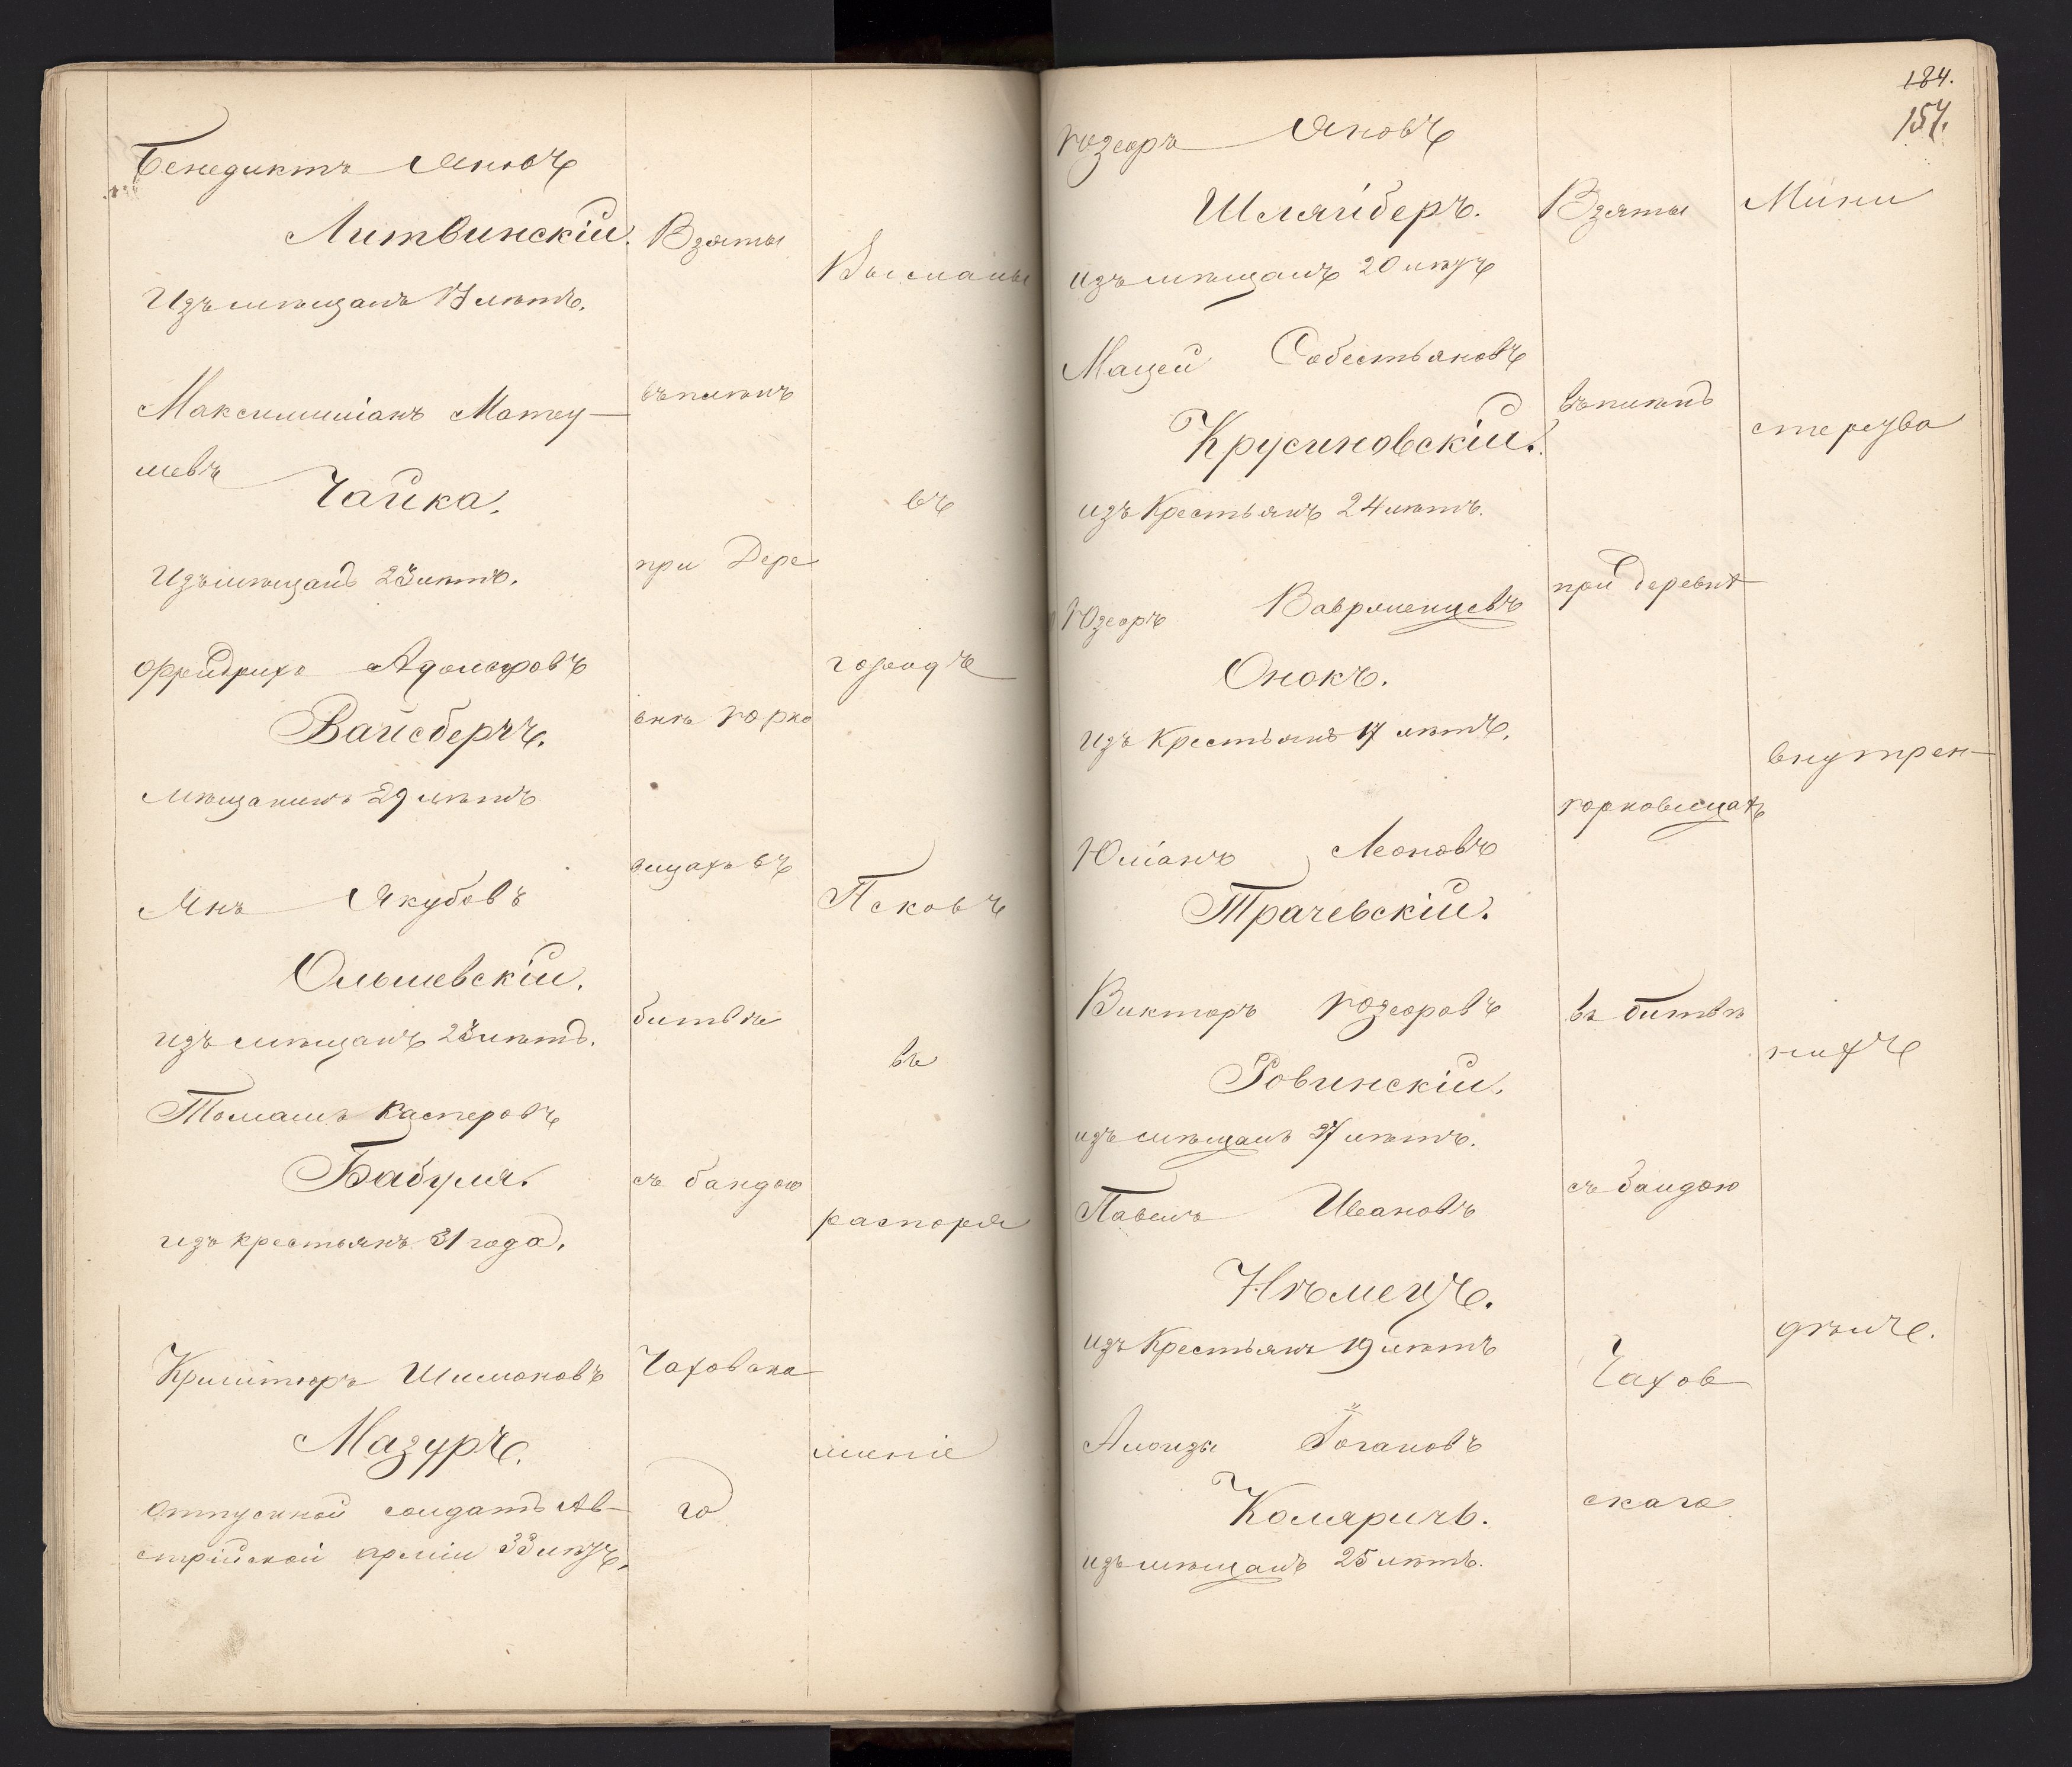 Бенедиктъ Яновъ
Литвинскій.
Изъ мѣщанъ 17 лѣтъ.
Максимиліанъ Матеу-
шевъ
Чайка.
Изъ мѣщанъ 23 лѣтъ.
Фридрихъ Адольфовъ
Вайсбергъ.
мѣщанинъ 29 лѣтъ
Янъ Якубовъ
Ольшевскій.
изъ мѣщанъ 23 лѣтъ.
Томашъ Касперовъ
Бабуля.
изъ крестьянъ 31 года.
Криштофъ Шимоновъ
Мазуръ.
отпускной солдатъ Ав-
стрійской арміи 33 лѣтъ.
Взяты
въ плѣнъ
при Дере
внѣ Юрко
вицахъ въ
битвѣ
съ бандою
Чаховска
го
Высланы
въ
городъ
Псковъ
въ
распоря
женіе
184.
157.
Юзефъ Яновъ
Шляйберъ.
изъ мѣщанъ 20 лѣтъ
Мацей Собестьяновъ
Крусиновскій.
изъ Крестьянъ 24 лѣтъ.
Юзефъ Ваврженцевъ
Онокъ.
изъ Крестьянъ 17 лѣтъ.
Юліанъ Леоновъ
Трачевскій.
Викторъ Юзефовъ
Ровинскій.
изъ мѣщанъ 37 лѣтъ.
Павелъ Ивановъ
Нѣмецъ.
изъ Крестьянъ 19 лѣтъ
Алоизы Іогановъ
Коляричъ.
изъ мѣщанъ 25 лѣтъ.
Взяты
въ плѣнъ
при деревнѣ
Юрковицахъ
въ битвѣ
съ бандою
Чахов
скаго
Мини
стерства
внутрен-
нихъ
дѣлъ.